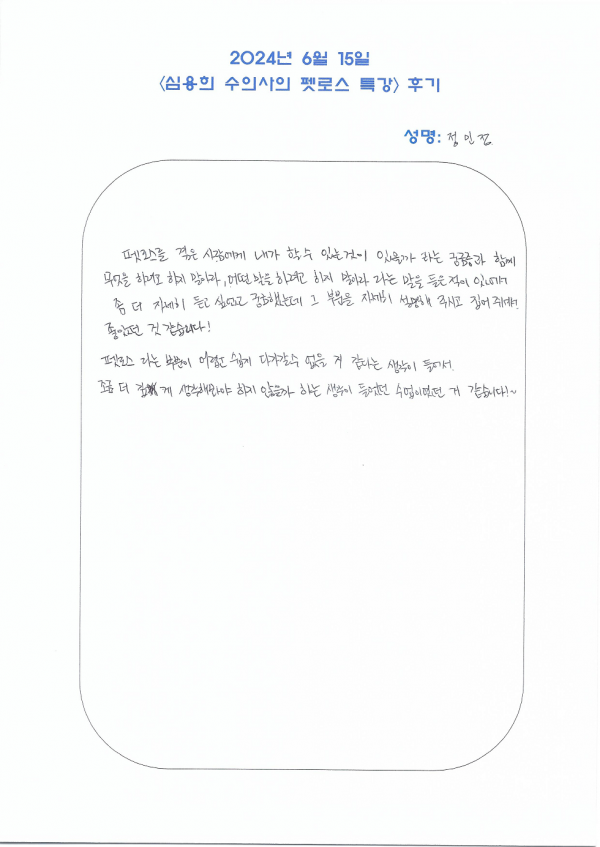 2024년 6월 15일
<심용희 수의사의 펫로스 특강> 후기
성명: 정민진
펫로스를 겪은 사람에게 내가 할수 있는것이 있을까 라는 궁금증과 함께
무엇을 하려고 하지 말아라, 어떤 말을 하려고 하지 말아라 라는 말을 들은적이 있는데
좀 더 자세히 듣고 싶었고 궁금했는데 그 부분을 자세히 설명해 주시고 집어 주셔서
좋았던 것 같습니다!
펫로스 라는 부분이 어렵고 쉽게 다가갈수 없을 거 같다는 생각이 들어서
조금 더 깊게 생각해봐야 하지 않을까 하는 생각이 들었던 수업이었던 거 같습니다!~